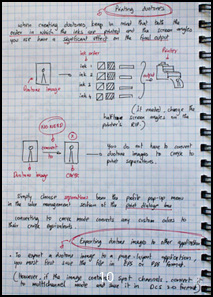 Printing duotones
When creating duotones, keep in mind that both the
order in which the inks are printed and the screen angles
you use have a significant effect on the final output
ink order
Printer
ink 1
ink 2
ink 3
ink 4
output
Duotone Image
(If needed, change the
halftone screen angles in the
printer's RIP.)
NO NEED
convert
to
Duotone Image
CMYK
You do not have to convert
duotone images to CMYK to
print separations.
Simply choose separations from the profile pop-up menu
in the color management section of the print dialog box
Converting to CMYK mode converts any custom colors to
their CMYK equivalents.
10
Exporting duotone images to other applications
To export a duotone image to a page-layout application,
you must first save the file in EPS or PDF format.
(However, if the image contains spot channels, convert
to multichannel mode and save it in DCS 2.0 format)